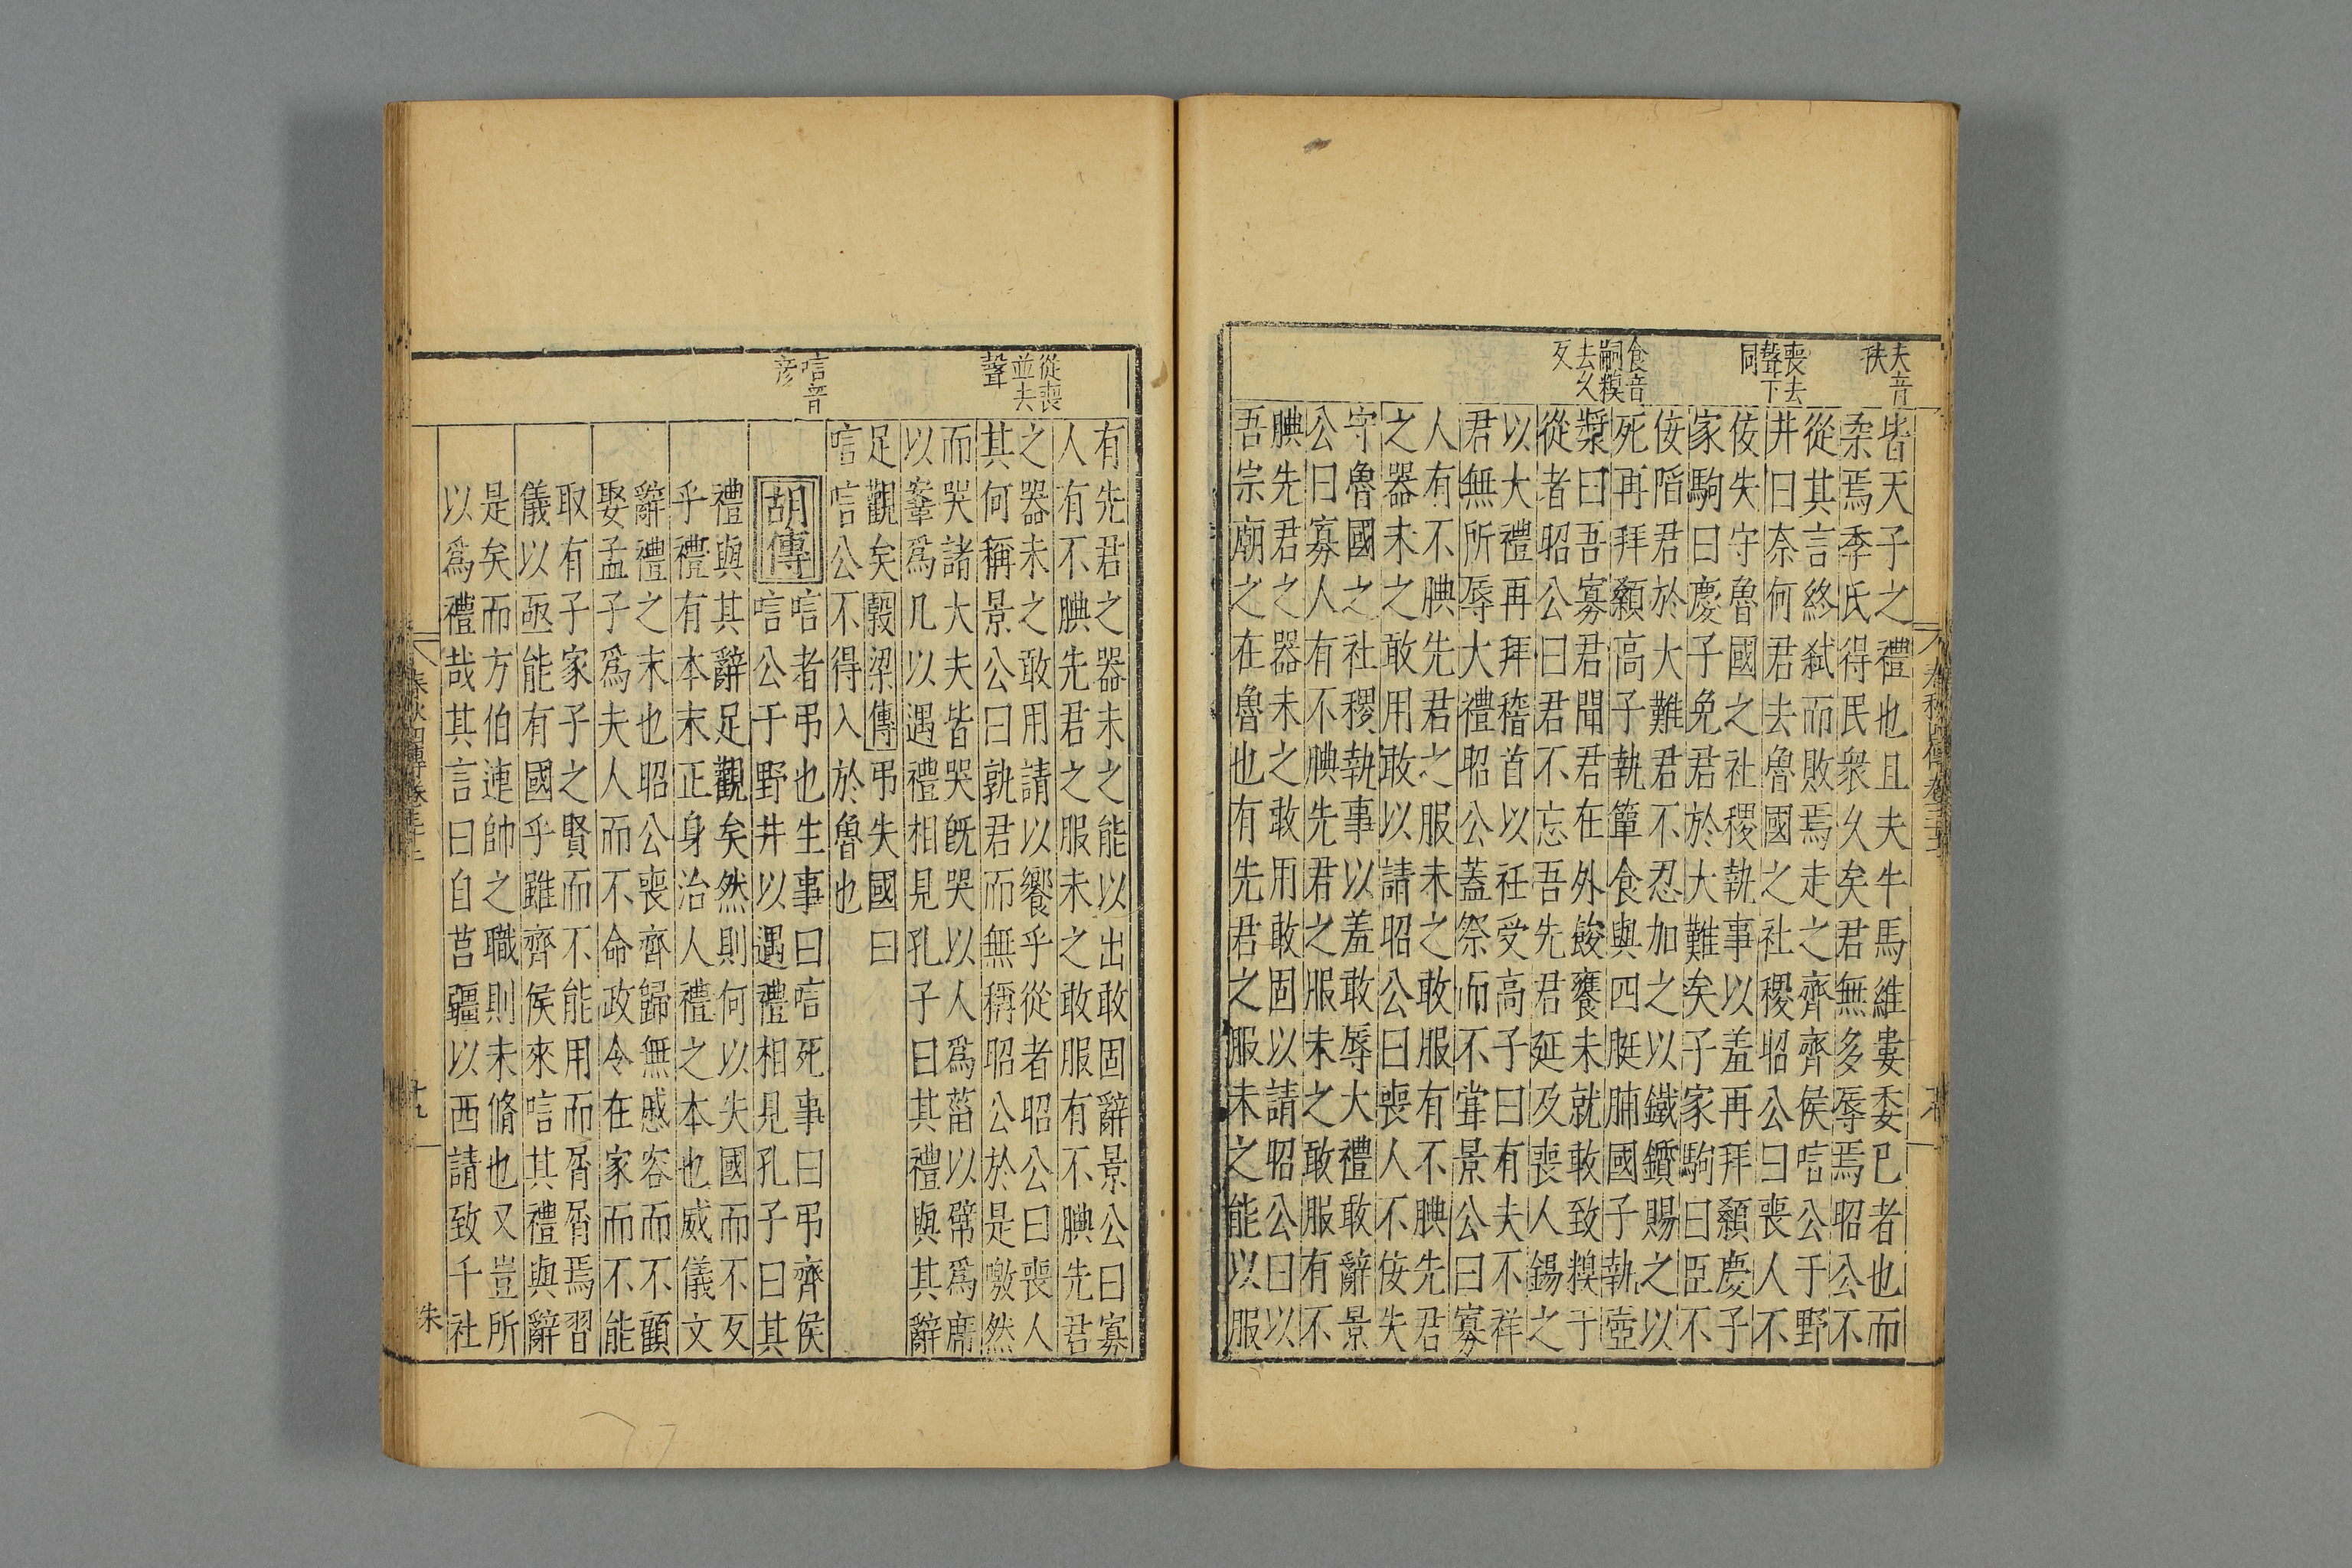 夫音
秩
喪去
聲下
同
食音
嗣糗
去久
反
皆天子之禮也且夫牛馬維婁委已者也而
柔焉季氏得民衆久矣君無多辱焉昭公不
從其言終弒而敗焉走之齊齊侯唁公于野
井曰奈何君去魯國之社稷昭公曰喪人不
佞失守魯國之社稷執事以羞再拜顙慶子
家駒曰慶子免君於大難矣子家駒曰臣不
佞陷君於大難君不忍加之以鐵鑕賜之以
死再拜顙高子執簞食與四脡脯國子執壺
漿曰吾寡君聞君在外餕饔未就敢致糗于
從者昭公曰君不忘吾先君延及喪人錫之
以大禮再拜稽首以衽受高子曰有夫不祥
君無所辱大禮昭公蓋祭而不甞景公曰寡
人有不腆先君之服未之敢服有不腆先君
之器未之敢用敢以請昭公曰喪人不佞失
守魯國之社稷執事以羞敢辱大禮敢辭景
公曰寡人有不腆先君之服未之敢服有不
腆先君之器未之敢用敢固以請昭公曰以
吾宗廟之在魯也有先君之服未之能以服
從喪
並去
聲
唁音
彦
有先君之器未之能以出敢固辭景公曰寡
人有不腆先君之服未之敢服有不腆先君
之器未之敢用請以饗乎從者昭公曰喪人
其何稱景公曰孰君而無稱昭公於是噭然
而哭諸大夫皆哭既哭以人爲菑以幦爲席
以鞌爲几以遇禮相見孔子曰其禮與其辭
足觀矣 穀梁傳 弔失國曰
唁唁公不得入於魯也
胡傳
唁者弔也生事曰唁死事曰弔齊侯
唁公于野井以遇禮相見孔子曰其
禮與其辭足觀矣然則何以失國而不反
乎禮有本末正身治人禮之本也威儀文
辭禮之末也昭公喪齊歸無慼容而不顧
娶孟子爲夫人而不命政令在家而不能
取有子家子之賢而不能用而屑屑焉習
儀以亟能有國乎雖齊侯來唁其禮與辭
是矣而方伯連帥之職則未脩也又豈所
以爲禮哉其言曰自莒疆以西請致千社
十九
朱